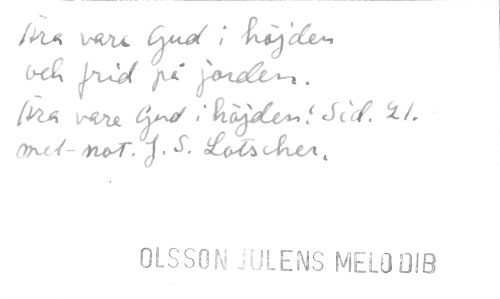 Ära vare Gud i höjden
och frid på jorden.
Ära vare Gud i höjden! Sid. 21.
mel-not. J. S. Lotscher.
OLSSON JULENS MELODIB